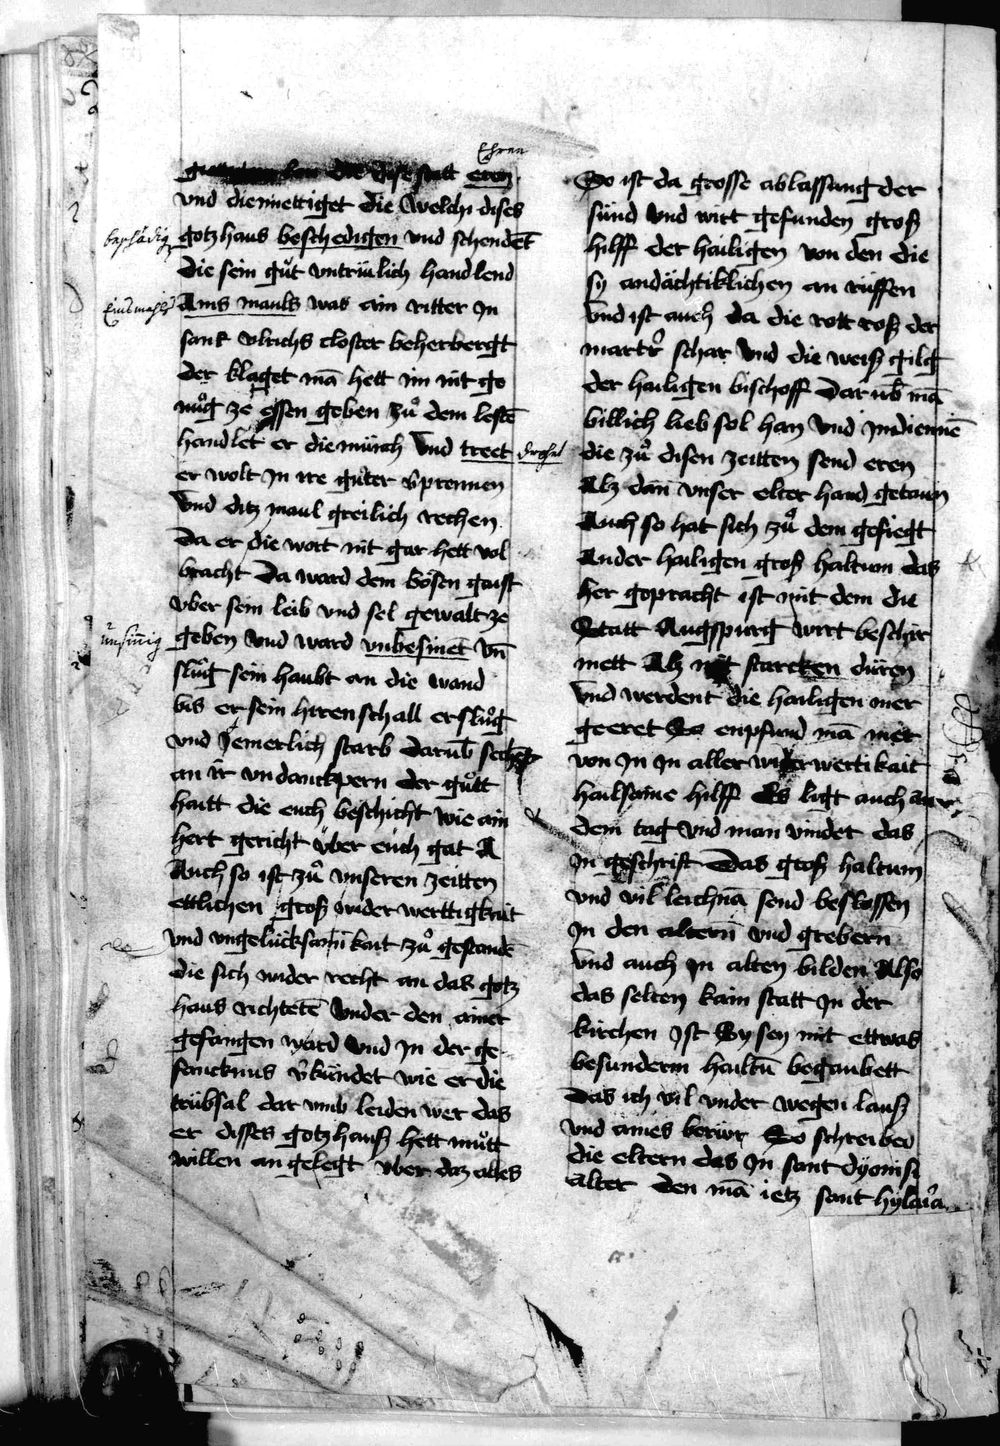 die dise statt eren
Ehren
vnd diemettiget die welchi dises
gotzhaus beschedigen vnd schendēt
die sein gůt vntrülich handlend
Ains mauls was ain ritter In
sank vlrichs closter beherbergt
der klaget mā hett im nit ge
nůg ze essen geben zů dem lestē
handlet er die münch vnd treet
er wolt In ire gůter v̄prennen
vnd ditz maul greilich rechen
Da er die wort nit gar hett vol
bracht Da ward dem bösen gaist
vber sein leib vnd sel gewalt ze
geben vnd ward vnbesinēt vn̄
slůg sein haubt an die wand
bis er sein hirenschall erslůg
vnd Jemerlich starb darūb sechēt
an ir vndanckpern der gůtt
hautt die euch beschicht wie ain
hert gericht über eüch gat A
Auch so ist zů vnseren zeitten
ettlichen groß wider werttigkait
vnd vngelücksamkait zů gestandē
die sich wider recht an das gotz
haus richtetē vnder den ainer
gefangen ward vnd In der ge
fancknus v̄kündet wie er die
trübsal dar vmb leiden wer das
er disses gotzhauß hett můtt
willen an gelegt vber daz alles
beschädig
Einsmahls
unsinnig
So ist da grosse ablassung der
sünd vnd wirt gefunden groß
hilff der hailigen von den die
sy andächtiklichen an rüffen
vnd ist auch da die rott roß der
martrer schar vnd die weiß gilg
der hailigen bischoff Dar ūb mā
billich lieb sol han vnd Indiennē
die zů disen zeitten send eren
Alz dan vnser elter hand getaun
Auch so hat sich zů dem gefiegt
Ander hailigen groß haltum das
her gopracht ist mit dem die
Statt Augspurg wirt beschir
mett Alz mit starcken düren
vnd werdent die hailigen mer
geeret So enpfund mā mer
von In In aller widerwertikait
hailsame hilff Es ligt auch an
dem tag vnd man vindet das
In geschrift Das groß haltum
vnd vil leichnā send beslossen
In den altern vnd grebern
vnd auch In alten bilden Also
das selten kain statt In der
kirchen Ist Sy sey mit ettwas
besunderm hailtū begaubett
Das ich vil vnder wegen lauß
vnd aines berür So schreibed
die eltern das In sant dyonisi
alter den mā ietz sant hylaria